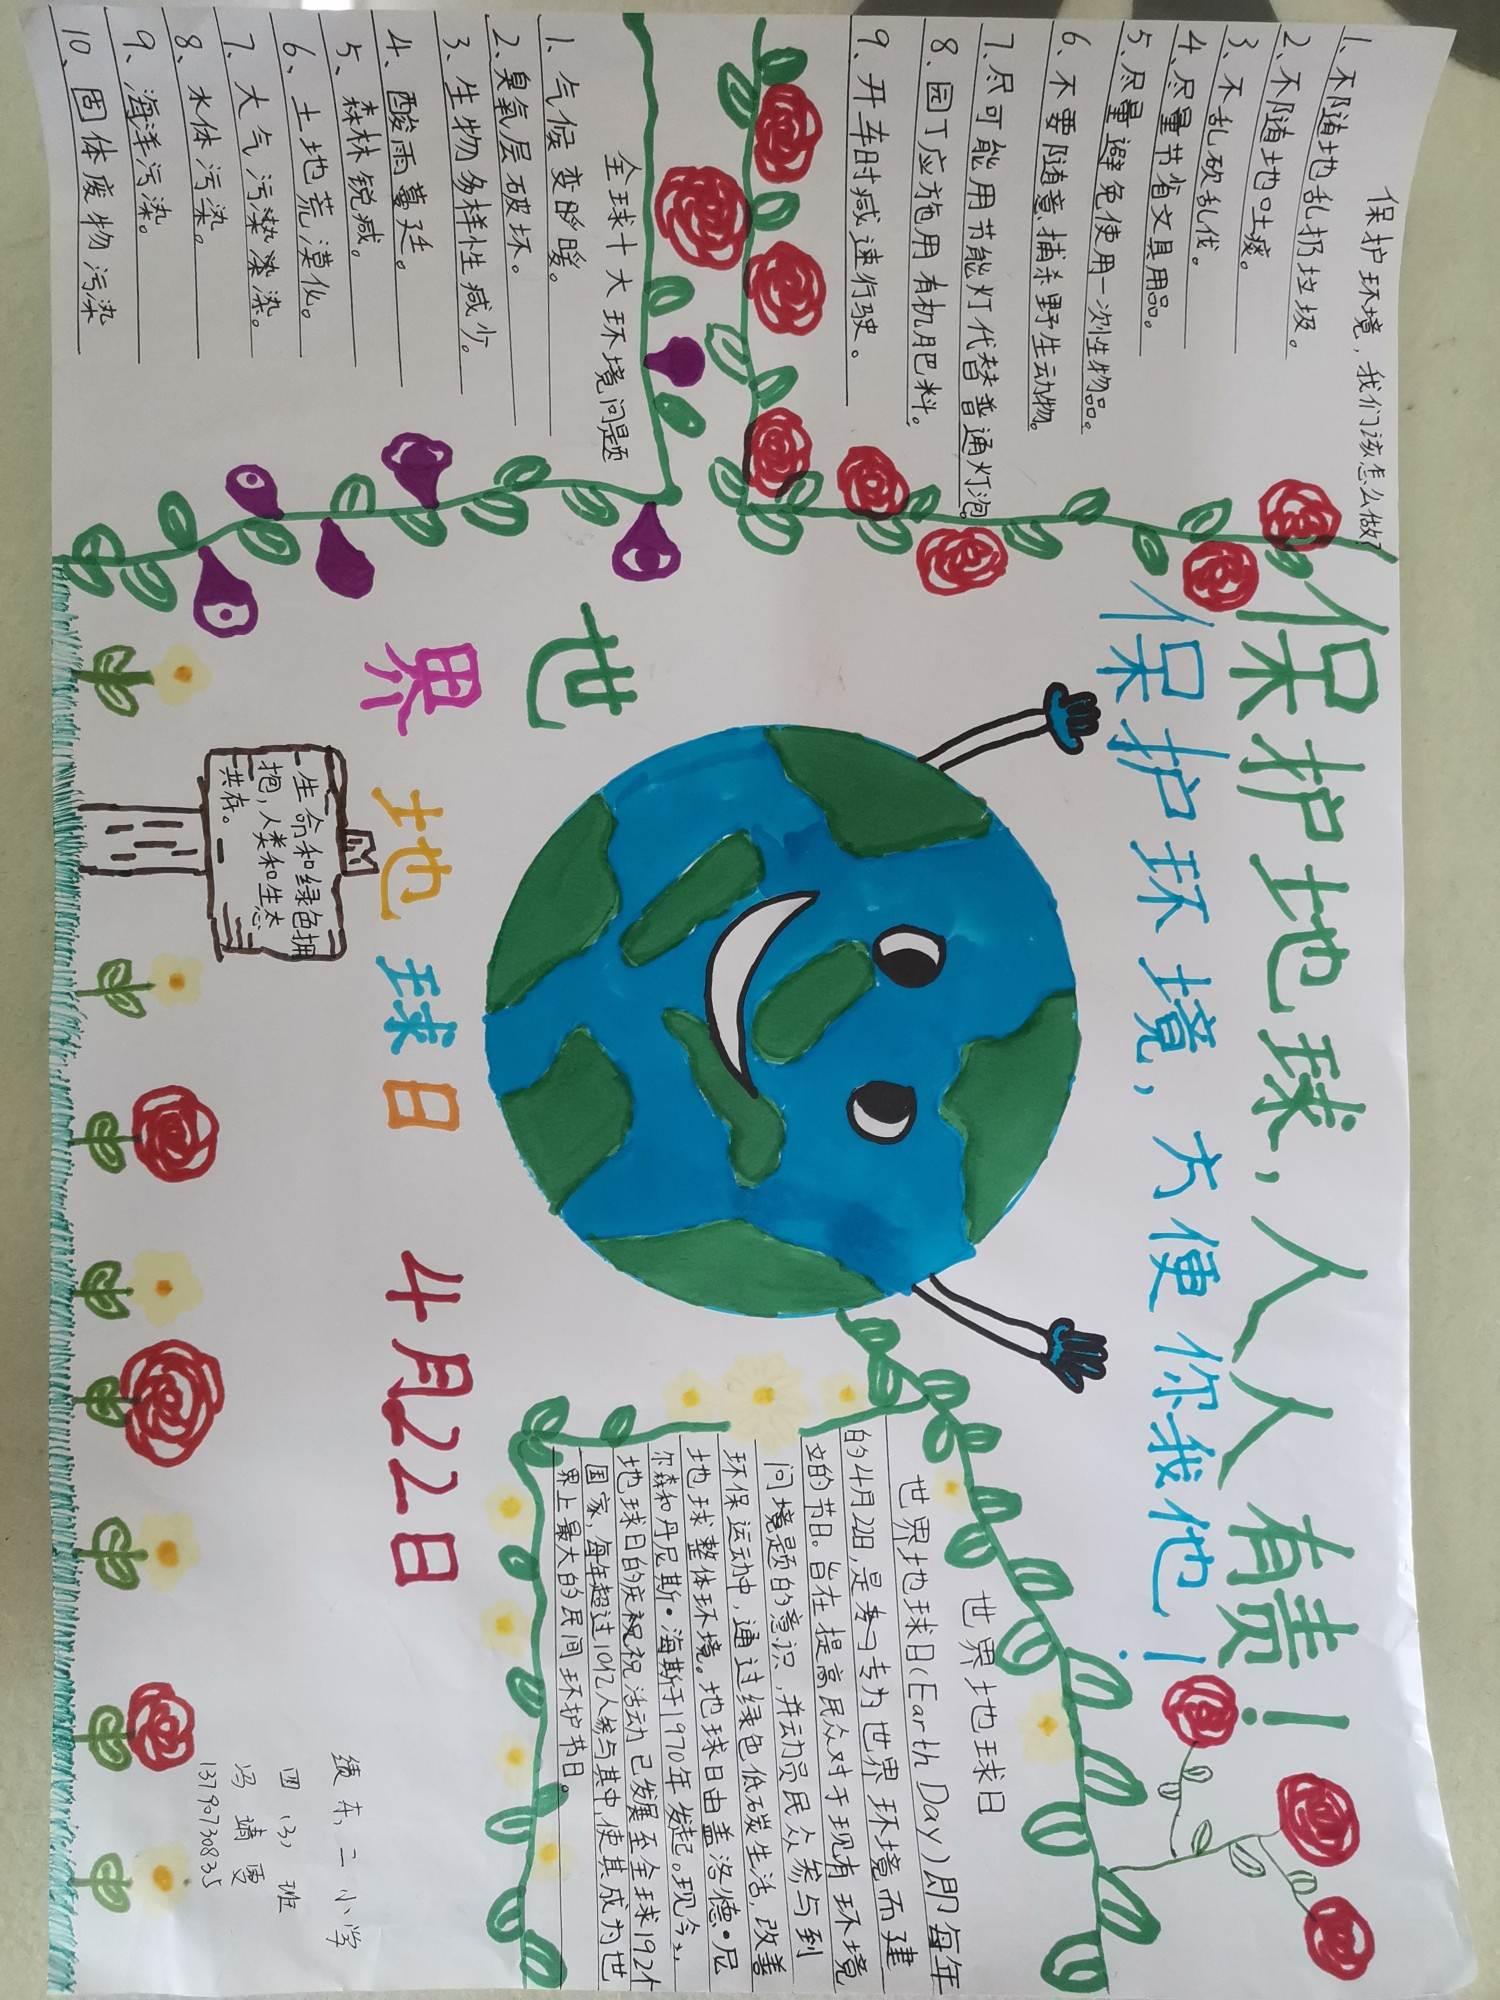 保护地球,人人有责!
保护环境,方便你我他!
保护环境,我们该怎么做?
1、不随地乱扔垃圾。
2、不随地吐痰。
3、不乱砍乱伐。
4、尽量节省文具用品。
5、尽量避免使用一次性物品。
6、不要随意捕杀野生动物。
7、尽可能用节能灯代替普通灯泡。
8、园丁应施用有机肥料。
9、开车时减速行驶。
全球十大环境问题
1、气候变暖。
2、臭氧层破坏。
3、生物多样性减少。
4、酸雨蔓延。
5、森林锐减。
6、土地荒漠化。
7、大气污染染染。
8、水体污染。
9、海洋污染。
10、固体废物污染
世
界地球日 4月22日
生命和绿色拥
抱,人类和生态
共存。
世界地球日
世界地球日(Earth Day)即每年
的4月22日,是专为世界环境而建
的节日。旨在提高民众对于现有环境
问境题的意识,并动员民众参与到
环保运动中,通过绿色低碳生活,改善
地球整体环境。地球日由盖洛德·尼
尔森和丹尼斯·海斯于1970年发起。现今,
地球日的庆祝祝活动已发展至全球192个
国家,每年超过10亿人参与其中,使其成为世
界上最大的民间环护节日。
二小学
四(3)班
冯靖雯
13790730835